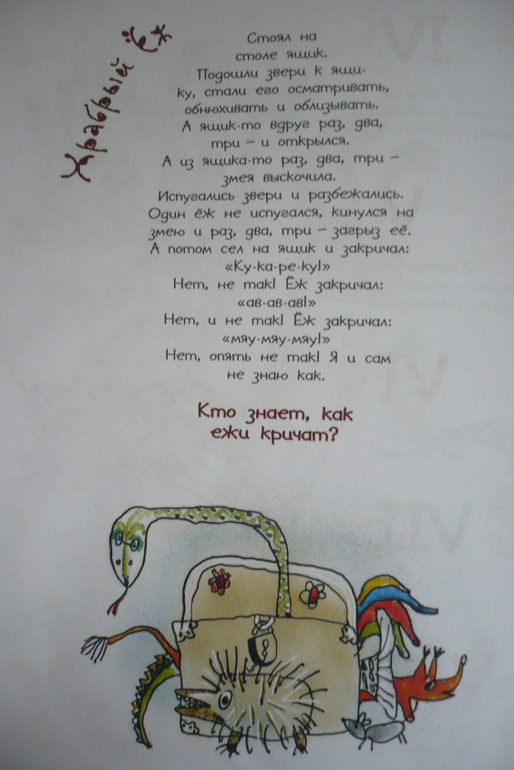 Храбрый ёж
Стоял на
столе ящик.
Подошли звери к ящи-
ку, стали его осматривать,
обнюхивать и облизывать.
А ящик-то вдруг раз, два,
три – и открылся.
А из ящика-то раз, два, три –
змея выскочила.
Испугались звери и разбежались.
Один ёж не испугался, кинулся на
змею и раз, два, три – загрыз её.
А потом сел на ящик и закричал:
«Ку-ка-ре-ку!»
Нет, не так! Ёж закричал:
«ав-ав-ав!»
Нет, и не так! Ёж закричал:
«мяу-мяу-мяу!»
Нет, опять не так! Я и сам
не знаю как.
Кто знает, как
ежи кричат?